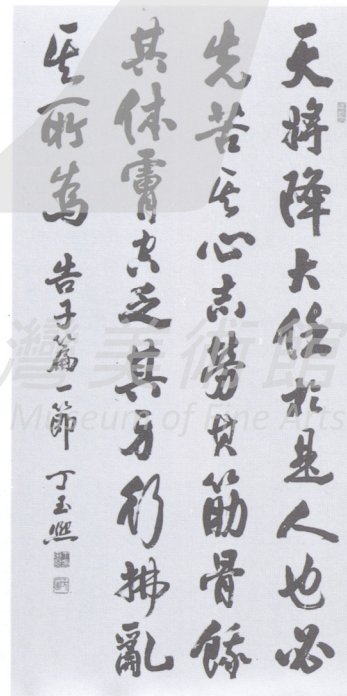 天將降大任於是人也必
先苦其心志勞其筋骨餓
其体膚空乏其身行拂亂
其所為 告子篇一節 丁玉熙
灣美術館
Museum of Fine Arts